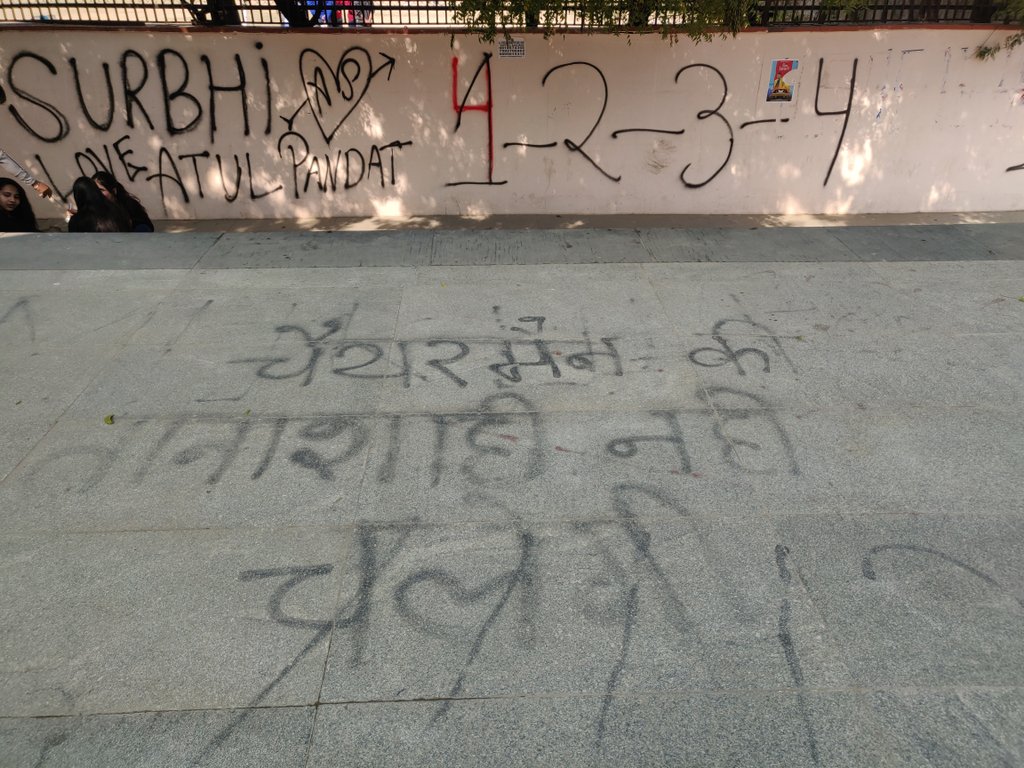 SURBHi
LOVE ATUL PANDAT
4-2-3-4
चैयरमैन की
तानाशाही नही
चलेगी।